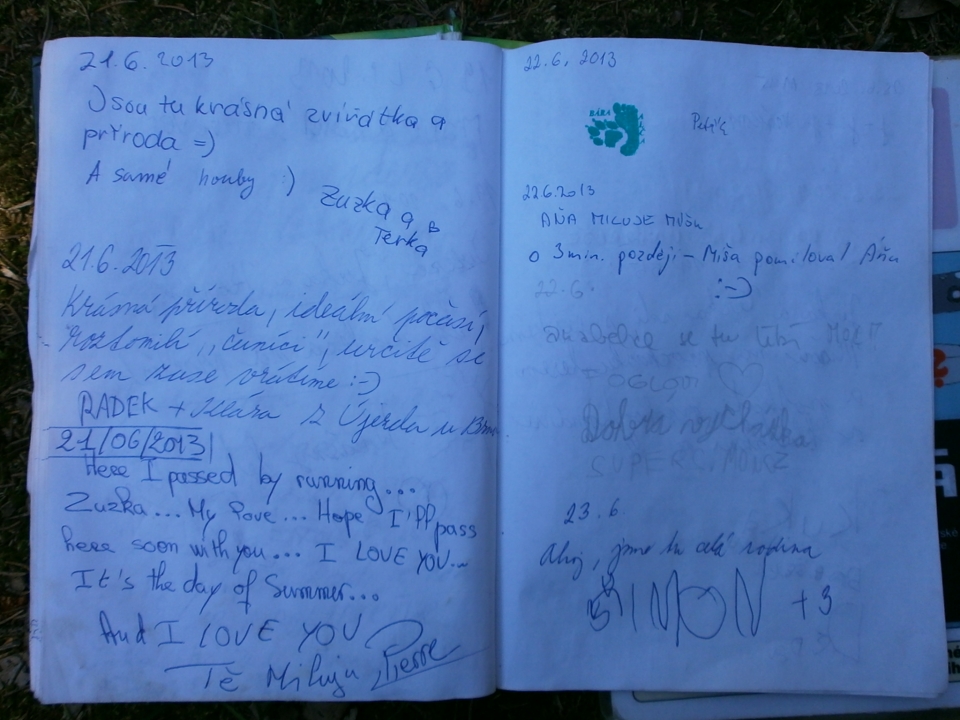 21.6.2013
Jsou tu krásná zvířátka a
příroda =)
A samé houby :)
Zuzka a
Terka B
21.6.2013
Krásná příroda, ideální počasí,
roztomilí „čuníci", určitě se
sem zase vrátíme :-)
RADEK + Klára z Újezda u Brna
21/06/2013
Here I passed by running...
Zuzka... My love... Hope I'll pass
here soon with you... I LOVE YOU...
It's the day of Summer...
And I LOVE YOU
Tě Miluju Pierre
22.6.2013
BÁRA
Petřík
22.6.2013
AŇA MILUJE MÍŠU
o 3min. později - Míša pomiloval Áňu
:-)
22.6.
se tu líbí
Dobrá
SUPER
23.6.
Ahoj, jsme tu celá rodina
ŠIMON +3